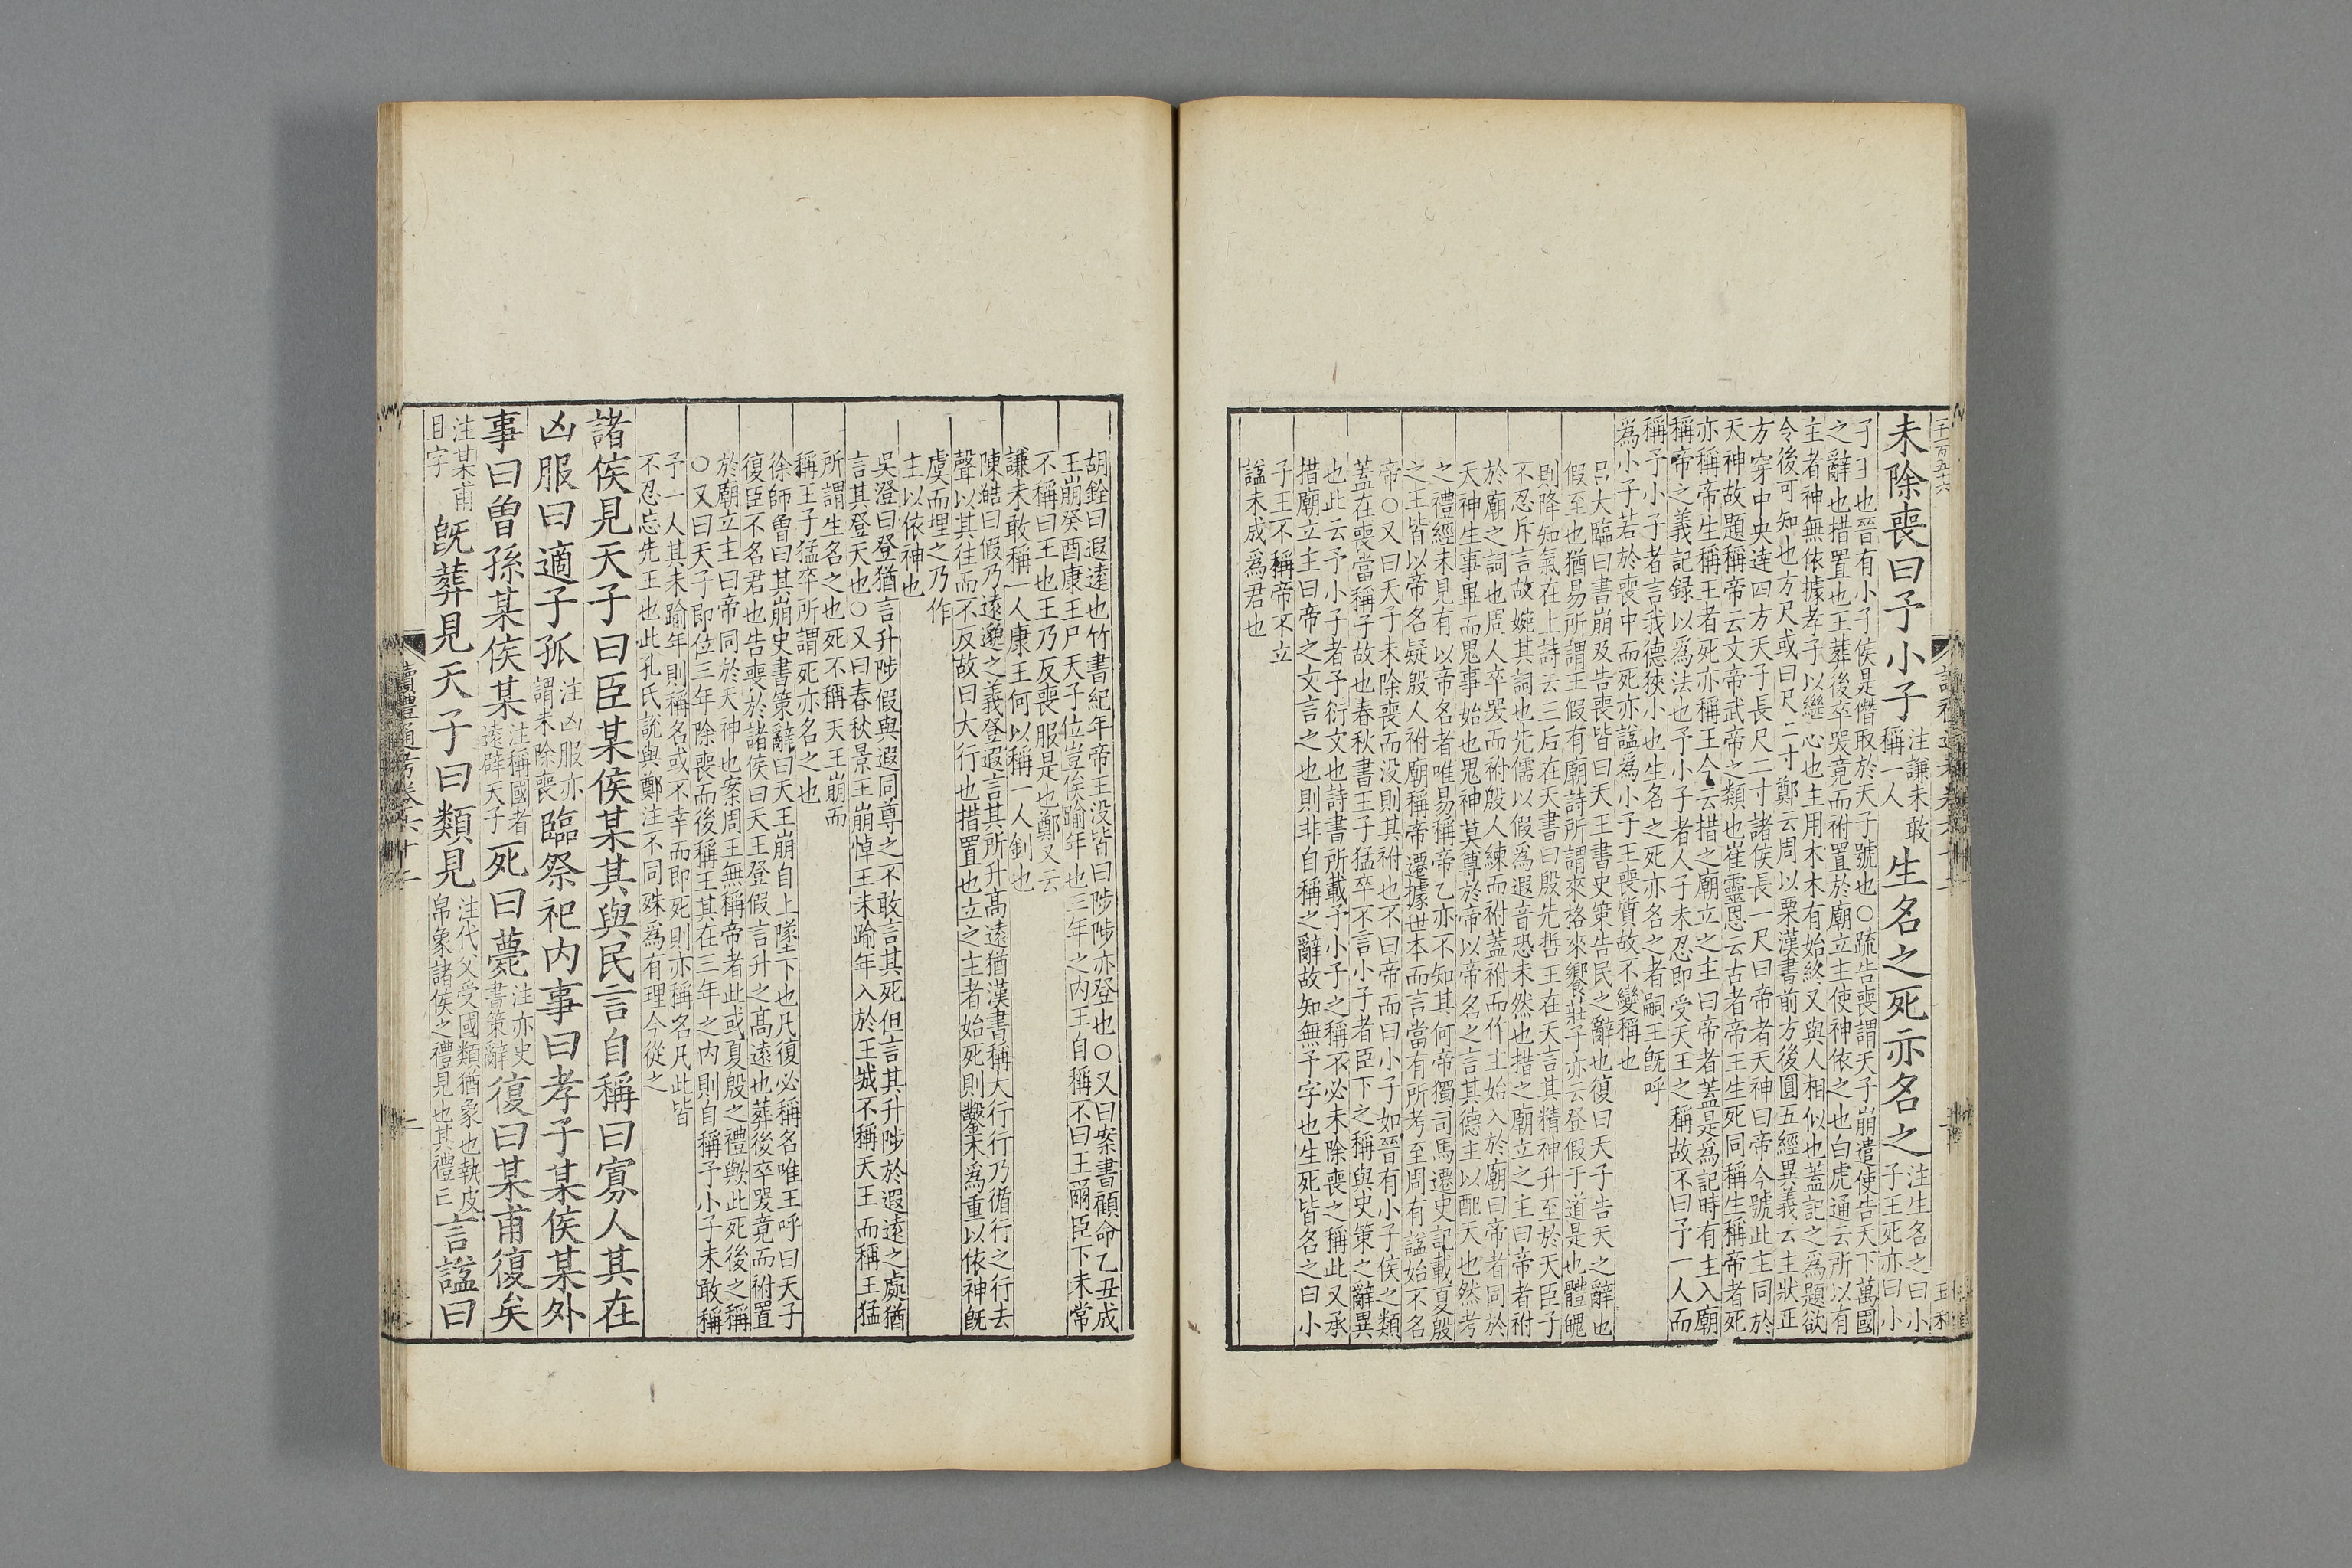 未除喪曰予小子
注謙未敢
稱一人
生名之死亦名之
注生名之曰小
子王死亦曰小
子王也晉有小子侯是僭取於天子號也○疏告喪謂天子崩遣使告天下萬國
之辭也措置也王葬後卒哭竟而祔置於廟立主使神依之也白虎通云所以有
主者神無依據孝子以繼心也主用木木有始終又與人相似也蓋記之爲題欲
令後可知也方尺或曰尺二寸鄭云周以栗漢書前方後圓五經異義云主狀正
方穿中央達四方天子長尺二寸諸侯長一尺曰帝者天神曰帝今號此主同於
天神故題稱帝云文帝武帝之類也崔靈恩云古者帝王生死同稱生稱帝者死
亦稱帝生稱王者死亦稱王今云措之廟立之主曰帝者蓋是爲記時有主入廟
稱帝之義記録以爲法也予小子者人子未忍即受天王之稱故不曰予一人而
稱予小子者言我德狹小也生名之死亦名之者嗣王既呼
爲小子若於喪中而死亦諡爲小子王喪質故不變稱也
呂大臨曰書崩及告喪皆曰天王書史策告民之辭也復曰天子告天之辭也
假至也猶易所謂王假有廟詩所謂來格來饗莊子亦云登假于道是也體魄
則降知氣在上詩云三后在天書曰殷先哲王在天言其精神升至於天臣子
不忍斥言故婉其詞也先儒以假爲遐音恐未然也措之廟立之主曰帝者祔
於廟之詞也周人卒哭而祔殷人練而祔蓋祔而作主始入於廟曰帝者同於
天神生事畢而鬼事始也鬼神莫尊於帝以帝名之言其德主以配天也然考
之禮經未見有以帝名者唯易稱帝乙亦不知其何帝獨司馬遷史記載夏殷
之王皆以帝名疑殷人祔廟稱帝遷據世本而言當有所考至周有諡始不名
帝○又曰天子未除喪而没則其祔也不曰帝而曰小子如晉有小子侯之類
蓋在喪當稱子故也春秋書王子猛卒不言小子者臣下之稱與史策之辭異
也此云予小子者予衍文也詩書所載予小子之稱不必未除喪之稱此又承
措廟立主曰帝之文言之也則非自稱之辭故知無予字也生死皆名之曰小
子王不稱帝不立
諡未成爲君也
胡銓曰遐遠也竹書紀年帝王没皆曰陟陟亦登也○又曰案書顧命乙丑成
王崩癸酉康王尸天子位豈俟踰年也三年之内王自稱不曰王爾臣下未常
不稱曰王也王乃反喪服是也鄭又云
謙未敢稱一人康王何以稱一人釗也
陳澔曰假乃遠邈之義登遐言其所升髙遠猶漢書稱大行行乃循行之行去
聲以其往而不反故曰大行也措置也立之主者始死則鑿木爲重以依神既
虞而埋之乃作
主以依神也
吳澄曰登猶言升陟假與遐同尊之不敢言其死但言其升陟於遐遠之處猶
言其登天也○又曰春秋景王崩悼王未踰年入於王城不稱天王而稱王猛
所謂生名之也死不稱天王崩而
稱王子猛卒所謂死亦名之也
徐師曾曰其崩史書策辭曰天王崩自上墜下也凡復必稱名唯王呼曰天子
復臣不名君也告喪於諸侯曰天王登假言升之髙遠也葬後卒哭竟而祔置
於廟立主曰帝同於天神也案周王無稱帝者此或夏殷之禮與此死後之稱
○又曰天子即位三年除喪而後稱王其在三年之内則自稱予小子未敢稱
予一人其未踰年則稱名或不幸而即死則亦稱名凡此皆
不忍忘先王也此孔氏說與鄭注不同殊爲有理今從之
諸侯見天子曰臣某侯某其與民言自稱曰寡人其在
凶服曰適子孤
注凶服亦
謂未除喪
臨祭祀内事曰孝子某侯某外
事曰曾孫某侯某
注稱國者
遠辟天子
死曰薨
注亦史
書策辭
復曰某甫復矣
注某甫
且字
既葬見天子曰類見
注代父受國類猶象也執皮
帛象諸侯之禮見也其禮亡
言諡曰
讀禮通考卷六十二
二